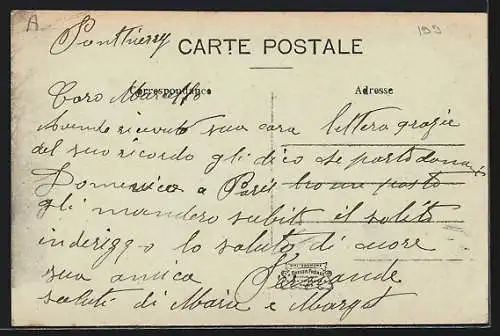 A
199
Ponthierry
CARTE POSTALE
Correspondance
Adresse
Caro Marcello
Avendo ricevuto sua cara lettera grazie
del suo ricordo gli dico se parto doman
Domenica a Paris
gli mandero subito il solito
inderizzo lo saluto di cuore
sua amica Fernande
saluti di Marie e Margo